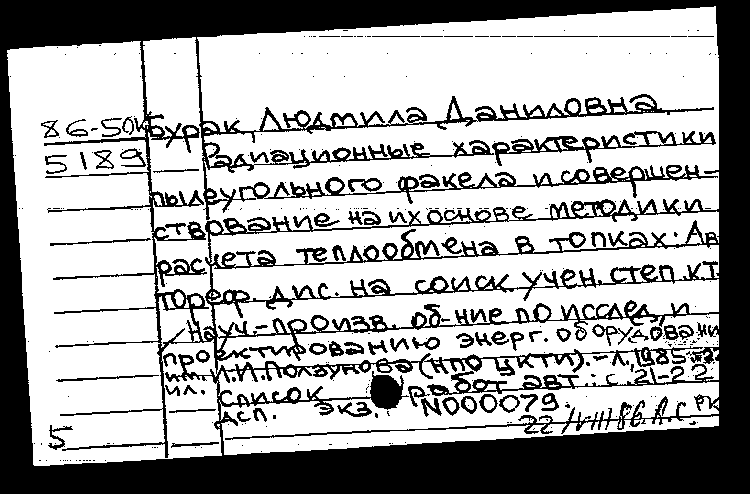 86-50к Бурак, Людмила Даниловна
5189 Радиационные характеристики
пылеугольного факела и совершен-
ствование на их основе методики
расчета теплообмена в топках: Ав
тореф. дис. на соиск. учен. степ. к.т.
/ Науч.-произв. об-ние по исслед. и
проектированию энерг. оборудовани
им. И.И. Ползунова (НПО ЦКТИ). - Л., 1985. - 22
ил. Список работ авт.: с. 21-22
дсп. экз. N000079.
5 22/VIII 86 А.С. РК